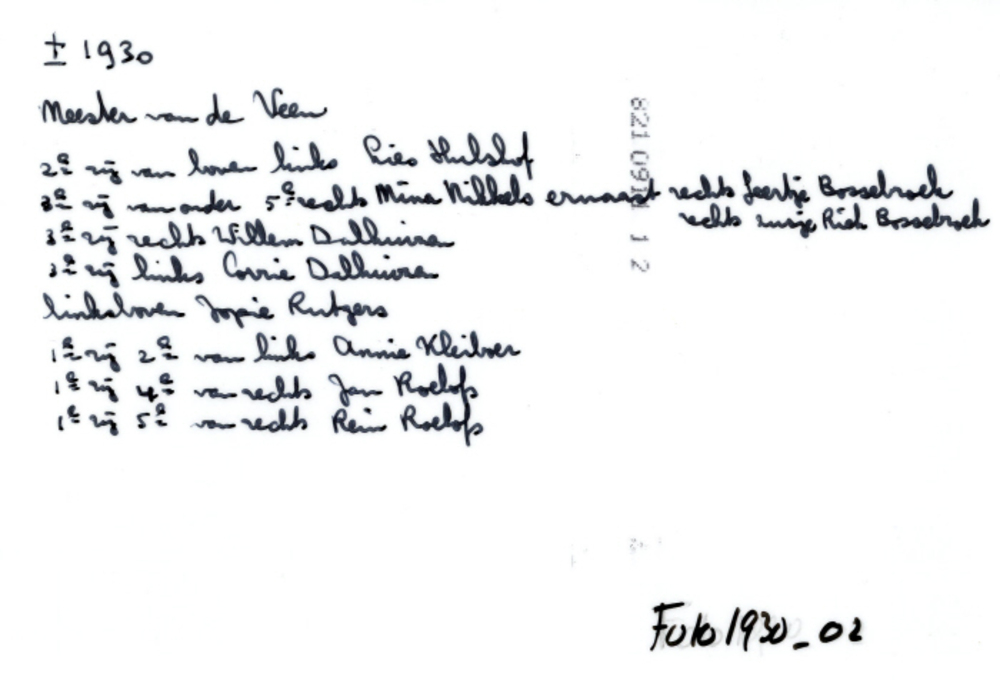 ± 1930
Meester van de Veen
2e rij van boven links Lies Hulshof
3e rij van onder 5e rechts Mina Nikkels ernaast rechts Geertje Bossebroek
rechts Riek Bossebroek
3e rij rechts Willem Dalhuisen
3e rij links Corrie Dalhuisen
linksboven Jopie Rutgers
1e rij 2e van links Annie Kleiboer
1e rij 4e van rechts Jan Roelofs
1e rij 5e van rechts Rein Roelofs
Foto 1930_02